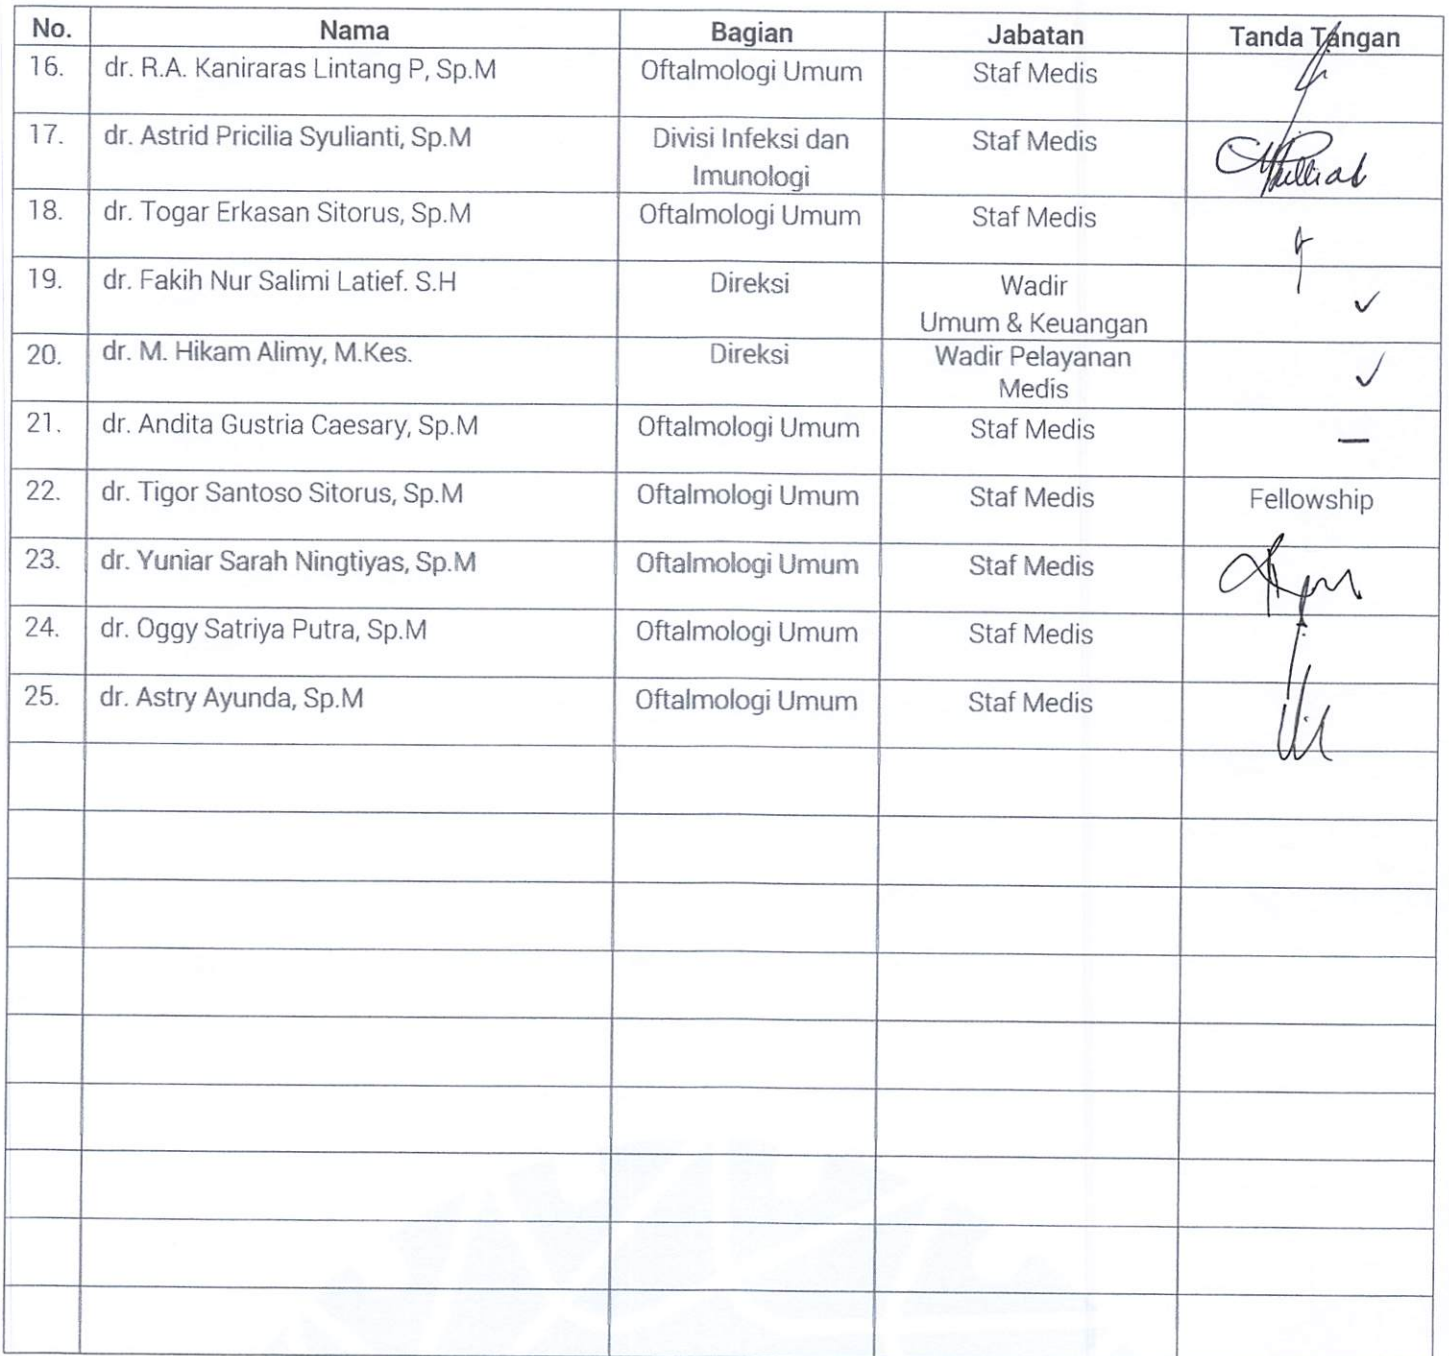 No. Nama Bagian Jabatan Tanda Tangan
16. dr. R.A. Kaniraras Lintang P, Sp.M Oftalmologi Umum Staf Medis
17. dr. Astrid Pricilia Syulianti, Sp.M Divisi Infeksi dan Staf Medis
Imunologi
18. dr. Togar Erkasan Sitorus, Sp.M Oftalmologi Umum Staf Medis
19. dr. Fakih Nur Salimi Latief. S.H Direksi Wadir ✓
Umum & Keuangan
20. dr. M. Hikam Alimy, M.Kes. Direksi Wadir Pelayanan ✓
Medis
21. dr. Andita Gustria Caesary, Sp.M Oftalmologi Umum Staf Medis —
22. dr. Tigor Santoso Sitorus, Sp.M Oftalmologi Umum Staf Medis Fellowship
23. dr. Yuniar Sarah Ningtiyas, Sp.M Oftalmologi Umum Staf Medis
24. dr. Oggy Satriya Putra, Sp.M Oftalmologi Umum Staf Medis
25. dr. Astry Ayunda, Sp.M Oftalmologi Umum Staf Medis